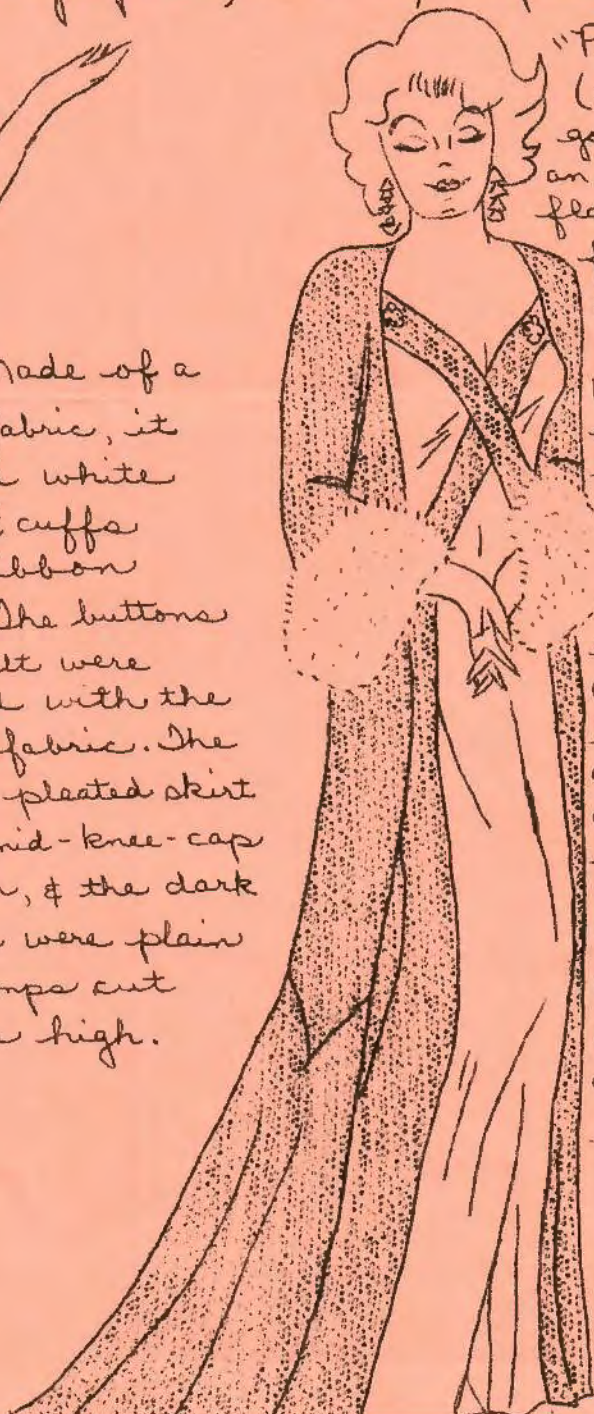 "P
(
go
an
fla
Made of a
abric, it
white
cuffs
ibbon
The buttons
lt were
d with the
fabric. The
pleated skirt
mid-knee-cap
, & the dark
were plain
mps cut
high.